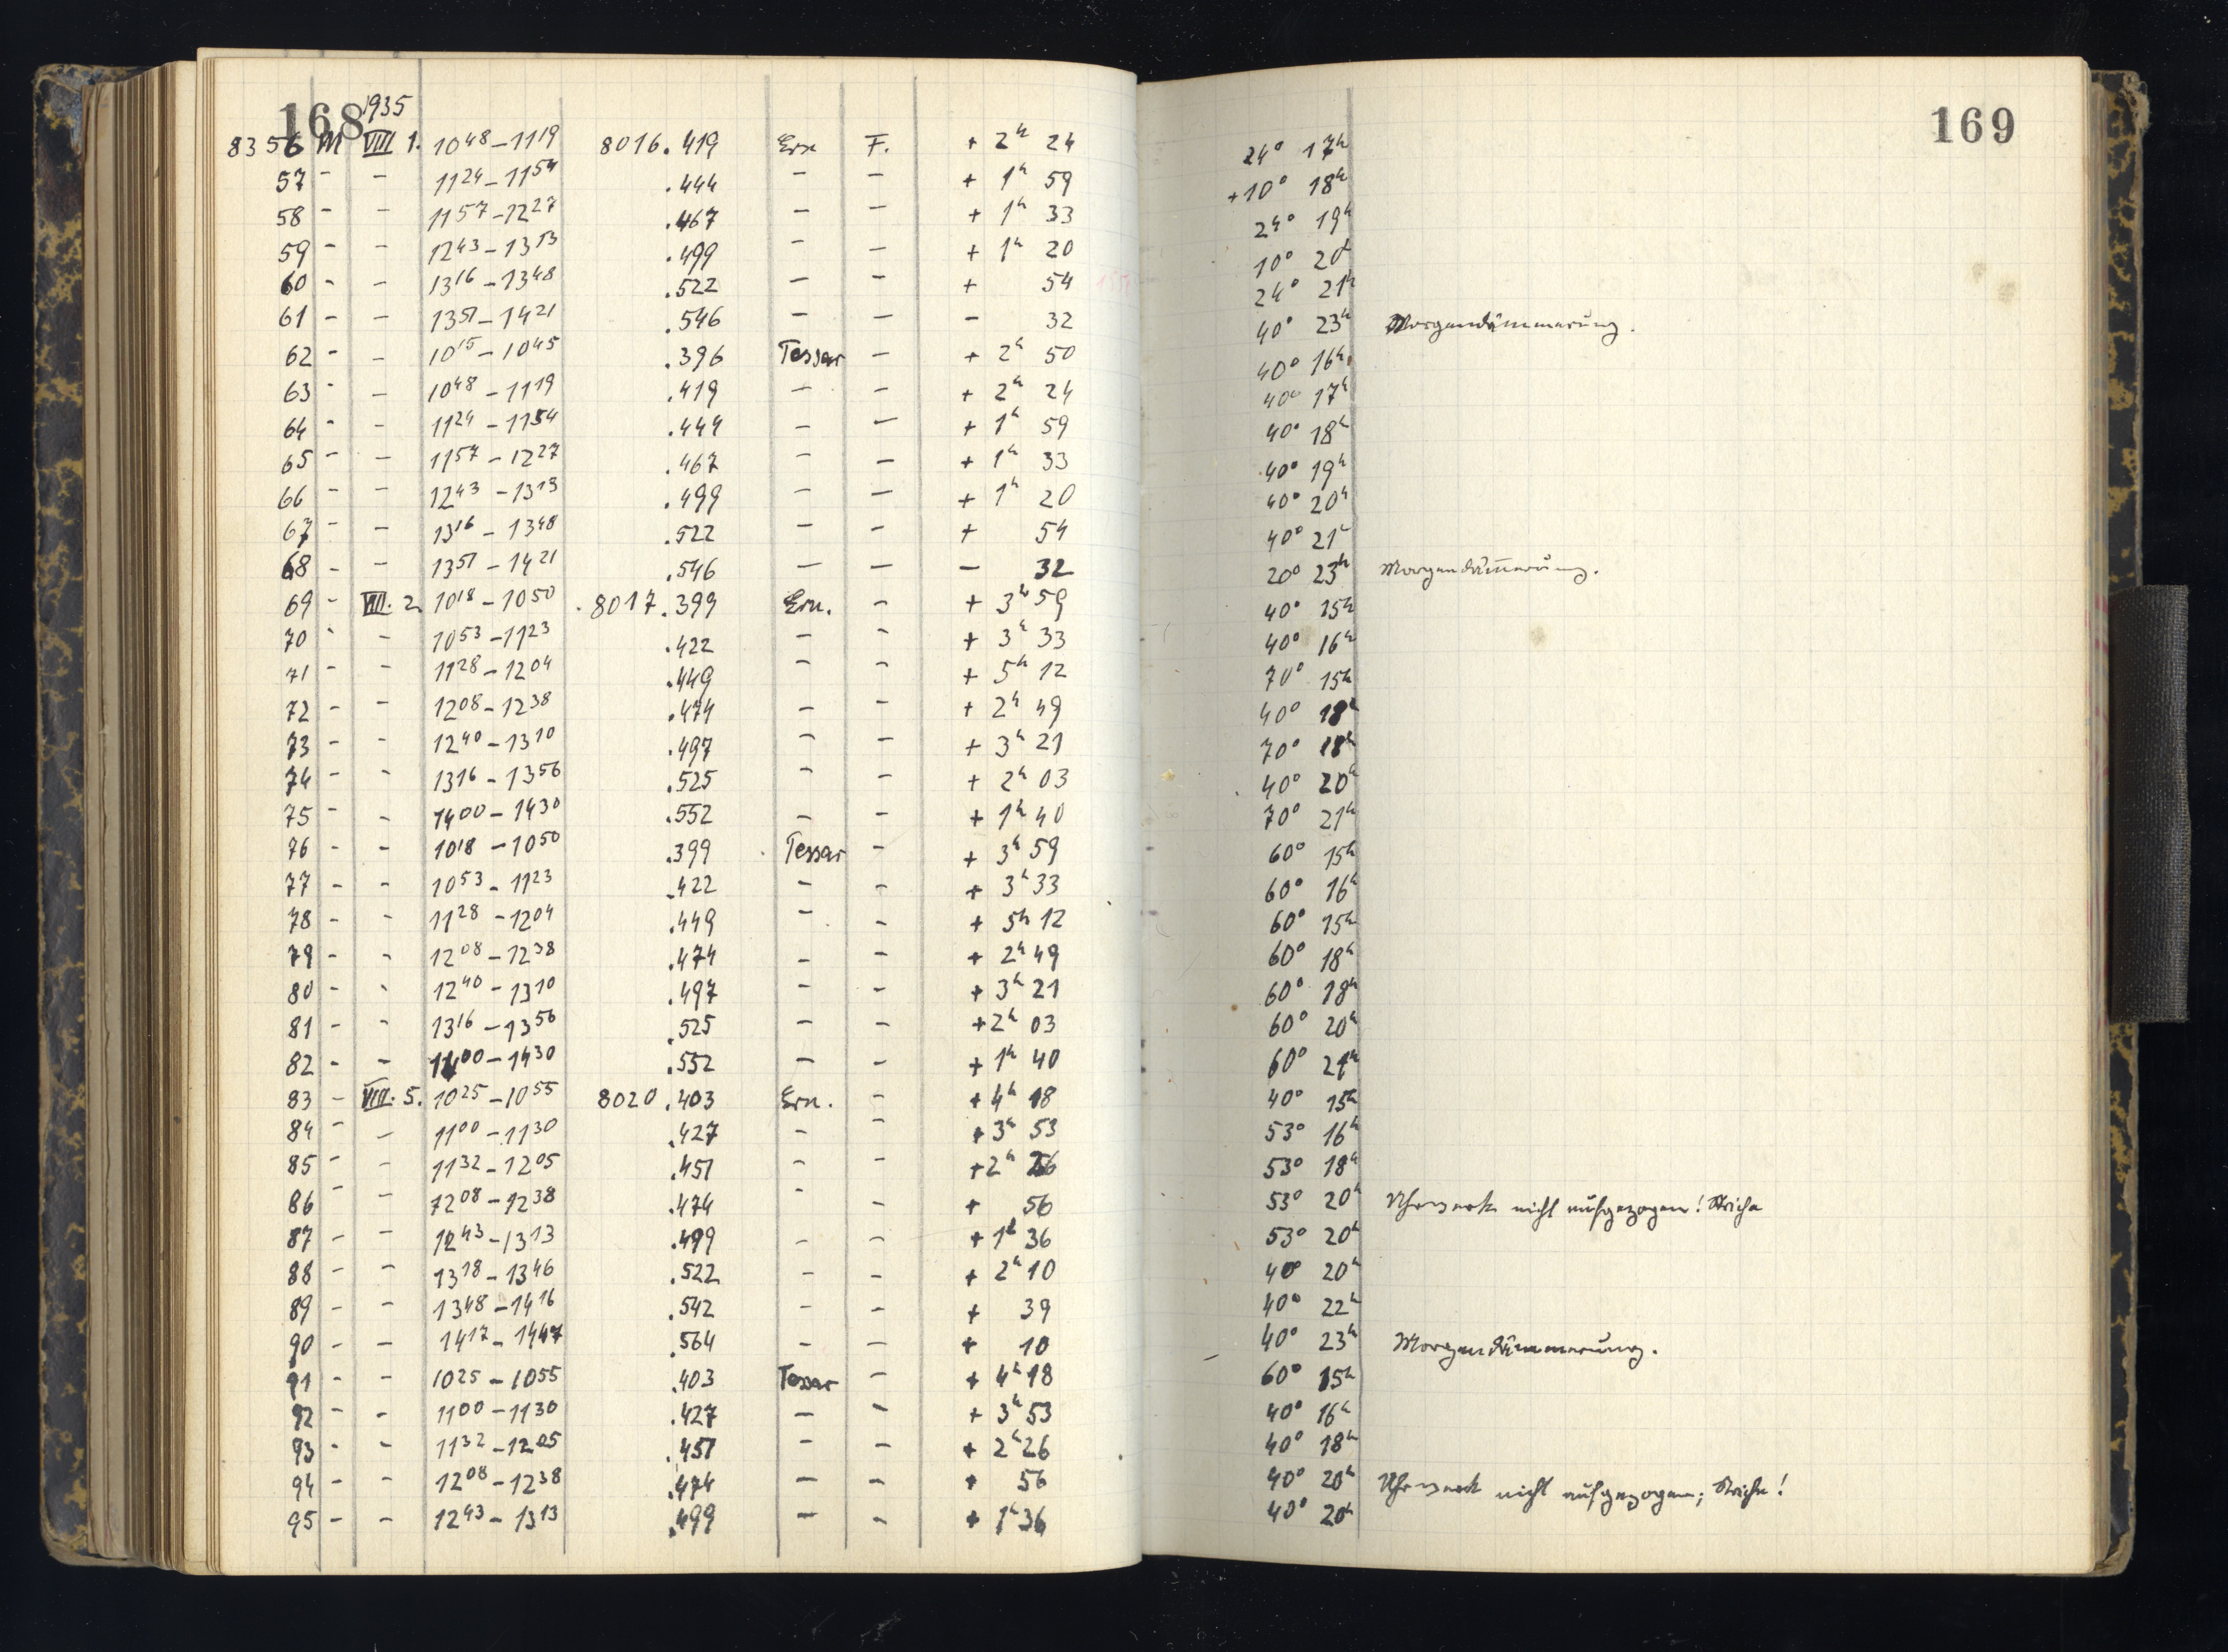 168 1935
169
8356 M VIII 1. 10 48 – 11 19 8016.419 Ern F. + 2h 24 24° 17h
57 - - 11 24 – 11 54 .444 - - + 1h 59 +10° 18h
58 - - 11 57 – 12 27 .467 - - + 1h 33 24° 19h
59 - - 12 43 – 13 13 .499 - - + 1h 20 10° 20h
60 - - 13 16 – 13 48 .522 - - + 54 24° 21h
61 - - 13 51 – 14 21 .546 - - - 32 40° 23h Morgendämmerung.
62 - - 10 15 – 10 45 .396 Tessar - + 2h 50 40° 16h
63 - - 10 48 – 11 19 .419 - - + 2h 24 40° 17h
64 - - 11 24 – 11 54 .444 - - + 1h 59 40° 18h
65 - - 11 57 – 12 27 .467 - - + 1h 33 40° 19h
66 - - 12 43 – 13 13 .499 - - + 1h 20 40° 20h
67 - - 13 16 – 13 48 .522 - - + 54 40° 21h
68 - - 13 51 – 14 21 .546 - - - 32 20° 23h Morgendämmerung.
69 - VIII. 2. 10 18 – 10 50 8017.399 Ern. - + 3h 59 40° 15h
70 - - 10 53 – 11 23 .422 - - + 3h 33 40° 16h
71 - - 11 28 – 12 04 .449 - - + 5h 12 70° 15h
72 - - 12 08 – 12 38 .474 - - + 2h 49 40° 18h
73 - - 12 40 – 13 10 .497 - - + 3h 21 70° 18h
74 - - 13 16 – 13 56 .525 - - + 2h 03 40° 20h
75 - - 14 00 – 14 30 .552 - - + 1h 40 70° 21h
76 - - 10 18 – 10 50 .399 Tessar - + 3h 59 60° 15h
77 - - 10 53 – 11 23 .422 - - + 3h 33 60° 16h
78 - - 11 28 – 12 04 .449 - - + 5h 12 60° 15h
79 - - 12 08 – 12 38 .474 - - + 2h 49 60° 18h
80 - - 12 40 – 13 10 .497 - - + 3h 21 60° 18h
81 - - 13 16 – 13 56 .525 - - + 2h 03 60° 20h
82 - - 14 00 – 14 30 .552 - - + 1h 40 60° 21h
83 - VIII. 5. 10 25 – 10 55 8020.403 Ern. - + 4h 18 40° 15h
84 - - 11 00 – 11 30 .427 - - + 3h 53 53° 16h
85 - - 11 32 – 12 05 .451 - - + 2h 26 53° 18h
86 - - 12 08 – 12 38 .474 - - + 56 53° 20h Uhrwerk nicht aufgezogen! Striche
87 - - 12 43 – 13 13 .499 - - + 1h 36 53° 20h
88 - - 13 18 – 13 46 .522 - - + 2h 10 40° 20h
89 - - 13 48 – 14 16 .542 - - + 39 40° 22h
90 - - 14 17 – 14 47 .564 - - + 10 40° 23h Morgendämmerung.
91 - - 10 25 – 10 55 .403 Tessar - + 4h 18 60° 15h
92 - - 11 00 – 11 30 .427 - - + 3h 53 40° 16h
93 - - 11 32 – 12 05 .451 - - + 2h 26 40° 18h
94 - - 12 08 – 12 38 .474 - - + 56 40° 20h Uhrwerk nicht aufgezogen; Striche!
95 - - 12 43 – 13 13 .499 - - + 1h 36 40° 20h